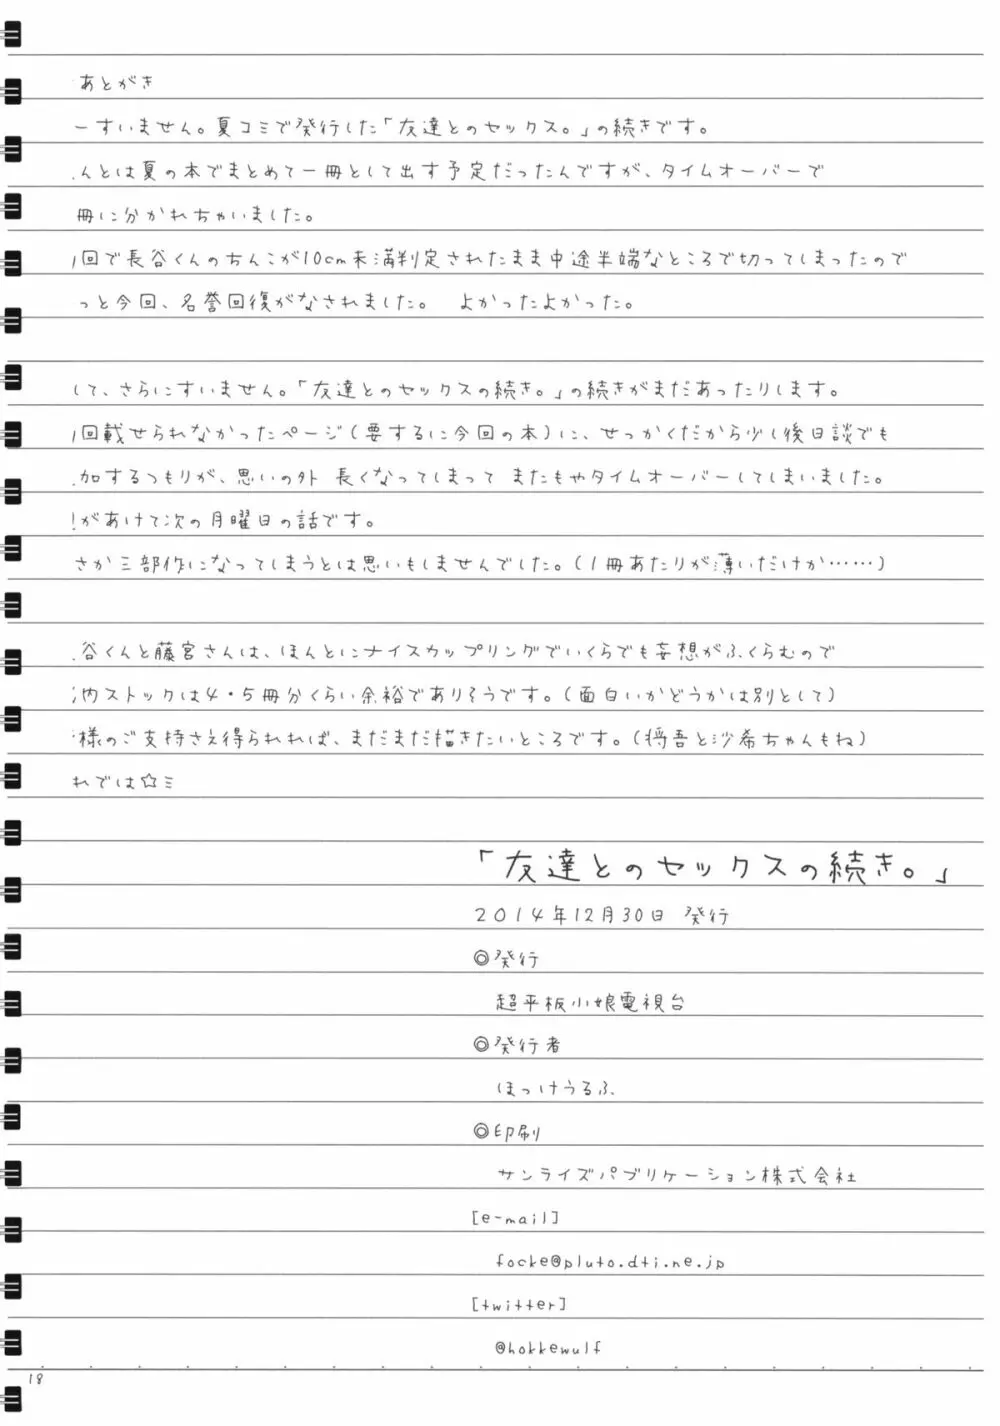 あとがき
ーすいません。夏コミで発行した「友達とのセックス。」の続きです。
んとは夏の本でまとめて一冊として出す予定だったんですが、タイムオーバーで
冊に分かれちゃいました。
回で長谷くんのちんこが10cm未満判定されたまま中途半端なところで切ってしまったので
っと今回、名誉回復がなされました。　よかったよかった。
して、さらにすいません。「友達とのセックスの続き。」の続きがまだあったりします。
回載せられなかったページ(要するに今回の本)に、せっかくだから少し後日談でも
加するつもりが、思いの外 長くなってしまって またもやタイムオーバーしてしまいました。
があけて次の月曜日の話です。
さか三部作になってしまうとは思いもしませんでした。(1冊あたりが薄いだけか……)
谷くんと藤宮さんは、ほんとにナイスカップリングでいくらでも妄想がふくらむので
内ストックは4・5冊分くらい余裕でありそうです。(面白いかどうかは別として)
様のご支持さえ得られれば、まだまだ描きたいところです。(将吾と沙希ちゃんもね)
れでは☆ミ
「友達とのセックスの続き。」
2014年12月30日 発行
◎発行
超平板小娘電視台
◎発行者
ほっけうるふ
◎印刷
サンライズパブリケーション株式会社
[e-mail]
focke@pluto.dti.ne.jp
[twitter]
@hokkewulf
18